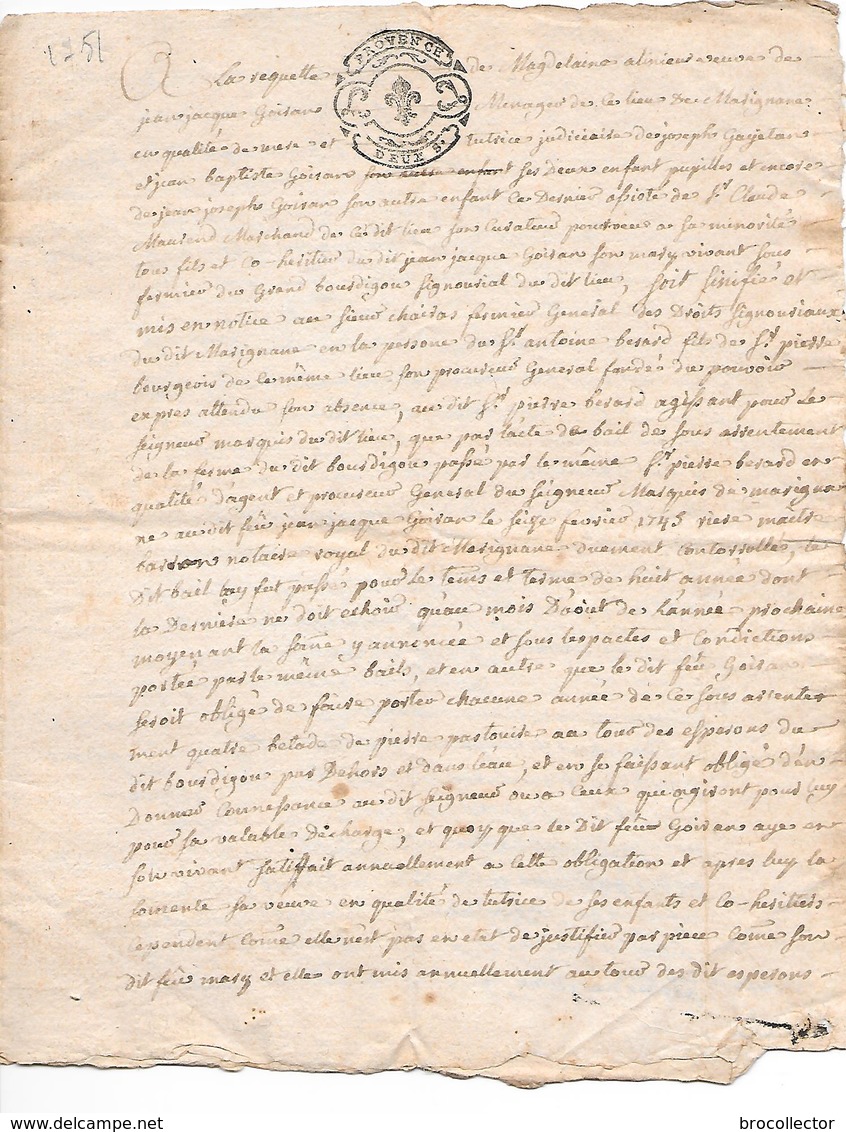 1751
PROVENCE
DEUX S.
La requette de Magdelaine alivieu veuve de
jean jacque Goiran Menager de ce lieu de Marignane
en qualité de mere et tutrice judiciaire de joseph Gayetan
et jean baptiste Goiran son autre enfant ses Deux enfant pupilles et encore
de jean joseph Goiran son autre enfant ce Dernier assisté de Sr. Claude
Maurend Marchand de ce dit lieu son Curateur pourveu a sa minorité
tou fils et Co-heritier du dit jean jacque Goiran son mary vivant sous
fermier du Grand bourdigou signourial du dit lieu, soit sinifié et
mis en notice au sieur chairas fermier General des Droits signouriaux
du dit Marignane en la persone du Sr. antoine berard fils de Sr. pierre
bourgeois de le même lieu son procureur General fondé du pouvoir
expres attendu son absence, au dit Sr. pierre berard agissant pour le
seigneur marquis du dit lieu, que par lacte de bail de sous arrentement
de la ferme du dit bourdigou passé par le même Sr. pierre berard en
qualité d'agent et procureur General du seigneur Marquis de marigna
ne au dit feu jean jacque Goiran le seize fevrier 1745 riere maitre
barron notaire royal du dit Marignane duement Contorrollé, le
dit bail luy fut passé pour le tems et terme de huit année dont
la Derniere ne doit echoir qu'au mois D'aout de l'année prochaine
moyenant la some y annoncée et sous les pactes et Condictions
portée par le même bail, et en autre que le dit feu Goiran
seroit obligé de faire porter chacune année de ce sous arrente
ment quatre betade de pierre pastouire au tour des esperons du
dit bourdigou par Dehors et dans l'eau, et en se faissant obligé d'en
Donner Connessance au dit seigneur ou a ceux qui agiront pour luy
pour sa valable Décharge, et quoy que le Dit feu Goiran aye en
son vivant satiffait annuellement a cette obligation et apres luy la
comente sa veuve en qualité de tutrice de ses enfants et Co-heritiers
cependent Come elle n'est pas en etat de justifier par piece Come son
dit feu mary et elle ont mis annuellement au tour des dit esperons
brocollector